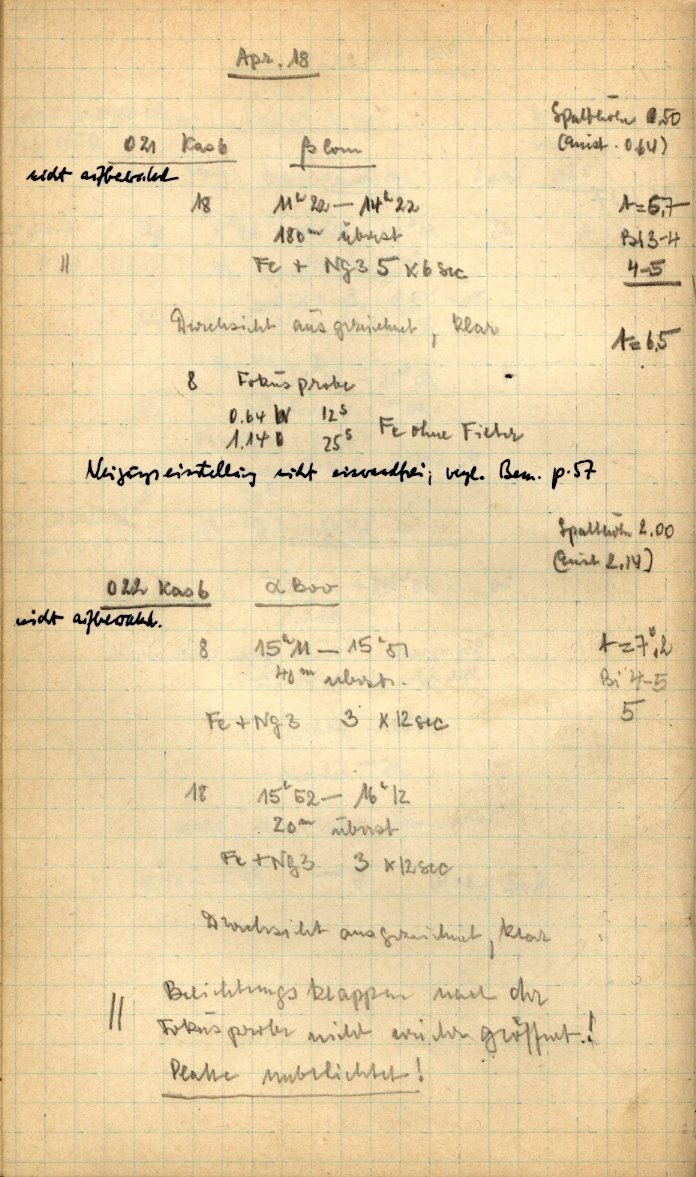 Apr. 18
Spalthöhe 0.50
021 Kas6 β Com
nicht aufbewahrt
18 11ʰ22 — 14ʰ22 A = 6,7
180ᵐ überst Bi 3-4
|| Fe + Ng3 5 x 6 sec 4-5
Durchsicht ausgezeichnet, klar
A = 6,5
8 Fokusprobe
0.64 12ˢ
1.14 25ˢ Fe ohne Filter
Neigungseinstellung nicht einwandfrei; vergl. Bem. p. 57
Spalthöhe 2.00
2.14)
022 Kas6 α Boo
nicht aufbewahrt.
8 15ʰ11 — 15ʰ51 A = 7°,2
40ᵐ überst. Bi 4-5
Fe + Ng3 3 x 12 sec 5
18 15ʰ52 — 16ʰ12
20ᵐ überst
Fe + Ng3 3 x 12 sec
Durchsicht ausgezeichnet, klar
|| Belichtungsklappe nach der
Fokusprobe nicht wieder geöffnet!
Platte unbelichtet!